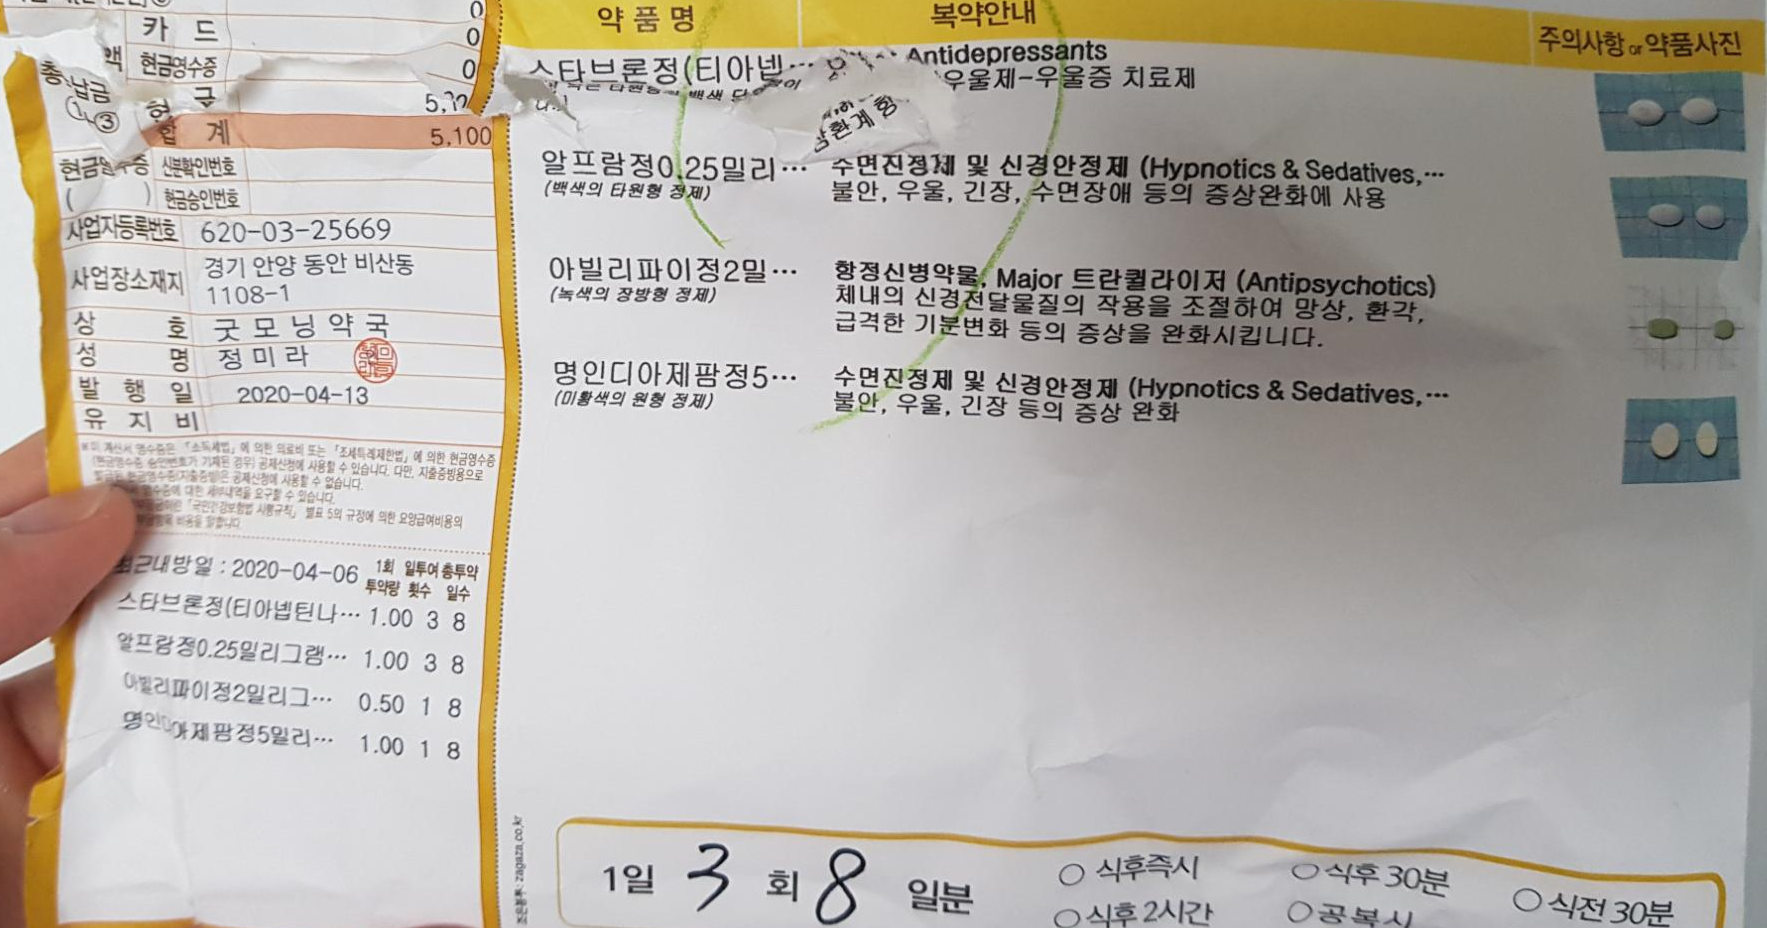 0
카 드 0
액 현금영수증 0
총 납금
③ 현 금
합 계 5,100
현금영수증 신분확인번호
( ) 현금승인번호
사업자등록번호 620-03-25669
사업장소재지 경기 안양 동안 비산동
1108-1
상 호 굿모닝약국
성 명 정미라
발 행 일 2020-04-13
유 지 비
※이 계산서 영수증은 「소득세법」에 의한 의료비 또는 「조세특례제한법」에 의한 현금영수증
(현금영수증 승인번호가 기재된 경우) 공제신청에 사용할 수 있습니다. 다만, 지출증빙용으로
발급된 현금영수증(지출증빙)은 공제신청에 사용할 수 없습니다.
에 대한 세부내역을 요구할 수 있습니다.
「국민건강보험법 시행규칙」 별표 5의 규정에 의한 요양급여비용의
비용을 말합니다.
최근내방일 : 2020-04-06 1회 일투여 총투약
투약량 횟수 일수
스타브론정(티아넵틴나… 1.00 3 8
알프람정0.25밀리그램… 1.00 3 8
아빌리파이정2밀리그… 0.50 1 8
명인디아제팜정5밀리… 1.00 1 8
약품명 복약안내 주의사항 or 약품사진
스타브론정(티아넵… Antidepressants
우울제-우울증 치료제
알프람정0.25밀리… 수면진정제 및 신경안정제 (Hypnotics & Sedatives,…
(백색의 타원형 정제) 불안, 우울, 긴장, 수면장애 등의 증상완화에 사용
아빌리파이정2밀… 항정신병약물, Major 트란퀼라이저 (Antipsychotics)
(녹색의 장방형 정제) 체내의 신경전달물질의 작용을 조절하여 망상, 환각,
급격한 기분변화 등의 증상을 완화시킵니다.
명인디아제팜정5… 수면진정제 및 신경안정제 (Hypnotics & Sedatives,…
(미황색의 원형 정제) 불안, 우울, 긴장 등의 증상 완화
zagaza.co.kr
1일 3 회 8 일분
○ 식후즉시 ○ 식후 30분 ○ 식전 30분
○ 식후 2시간 ○ 공복시